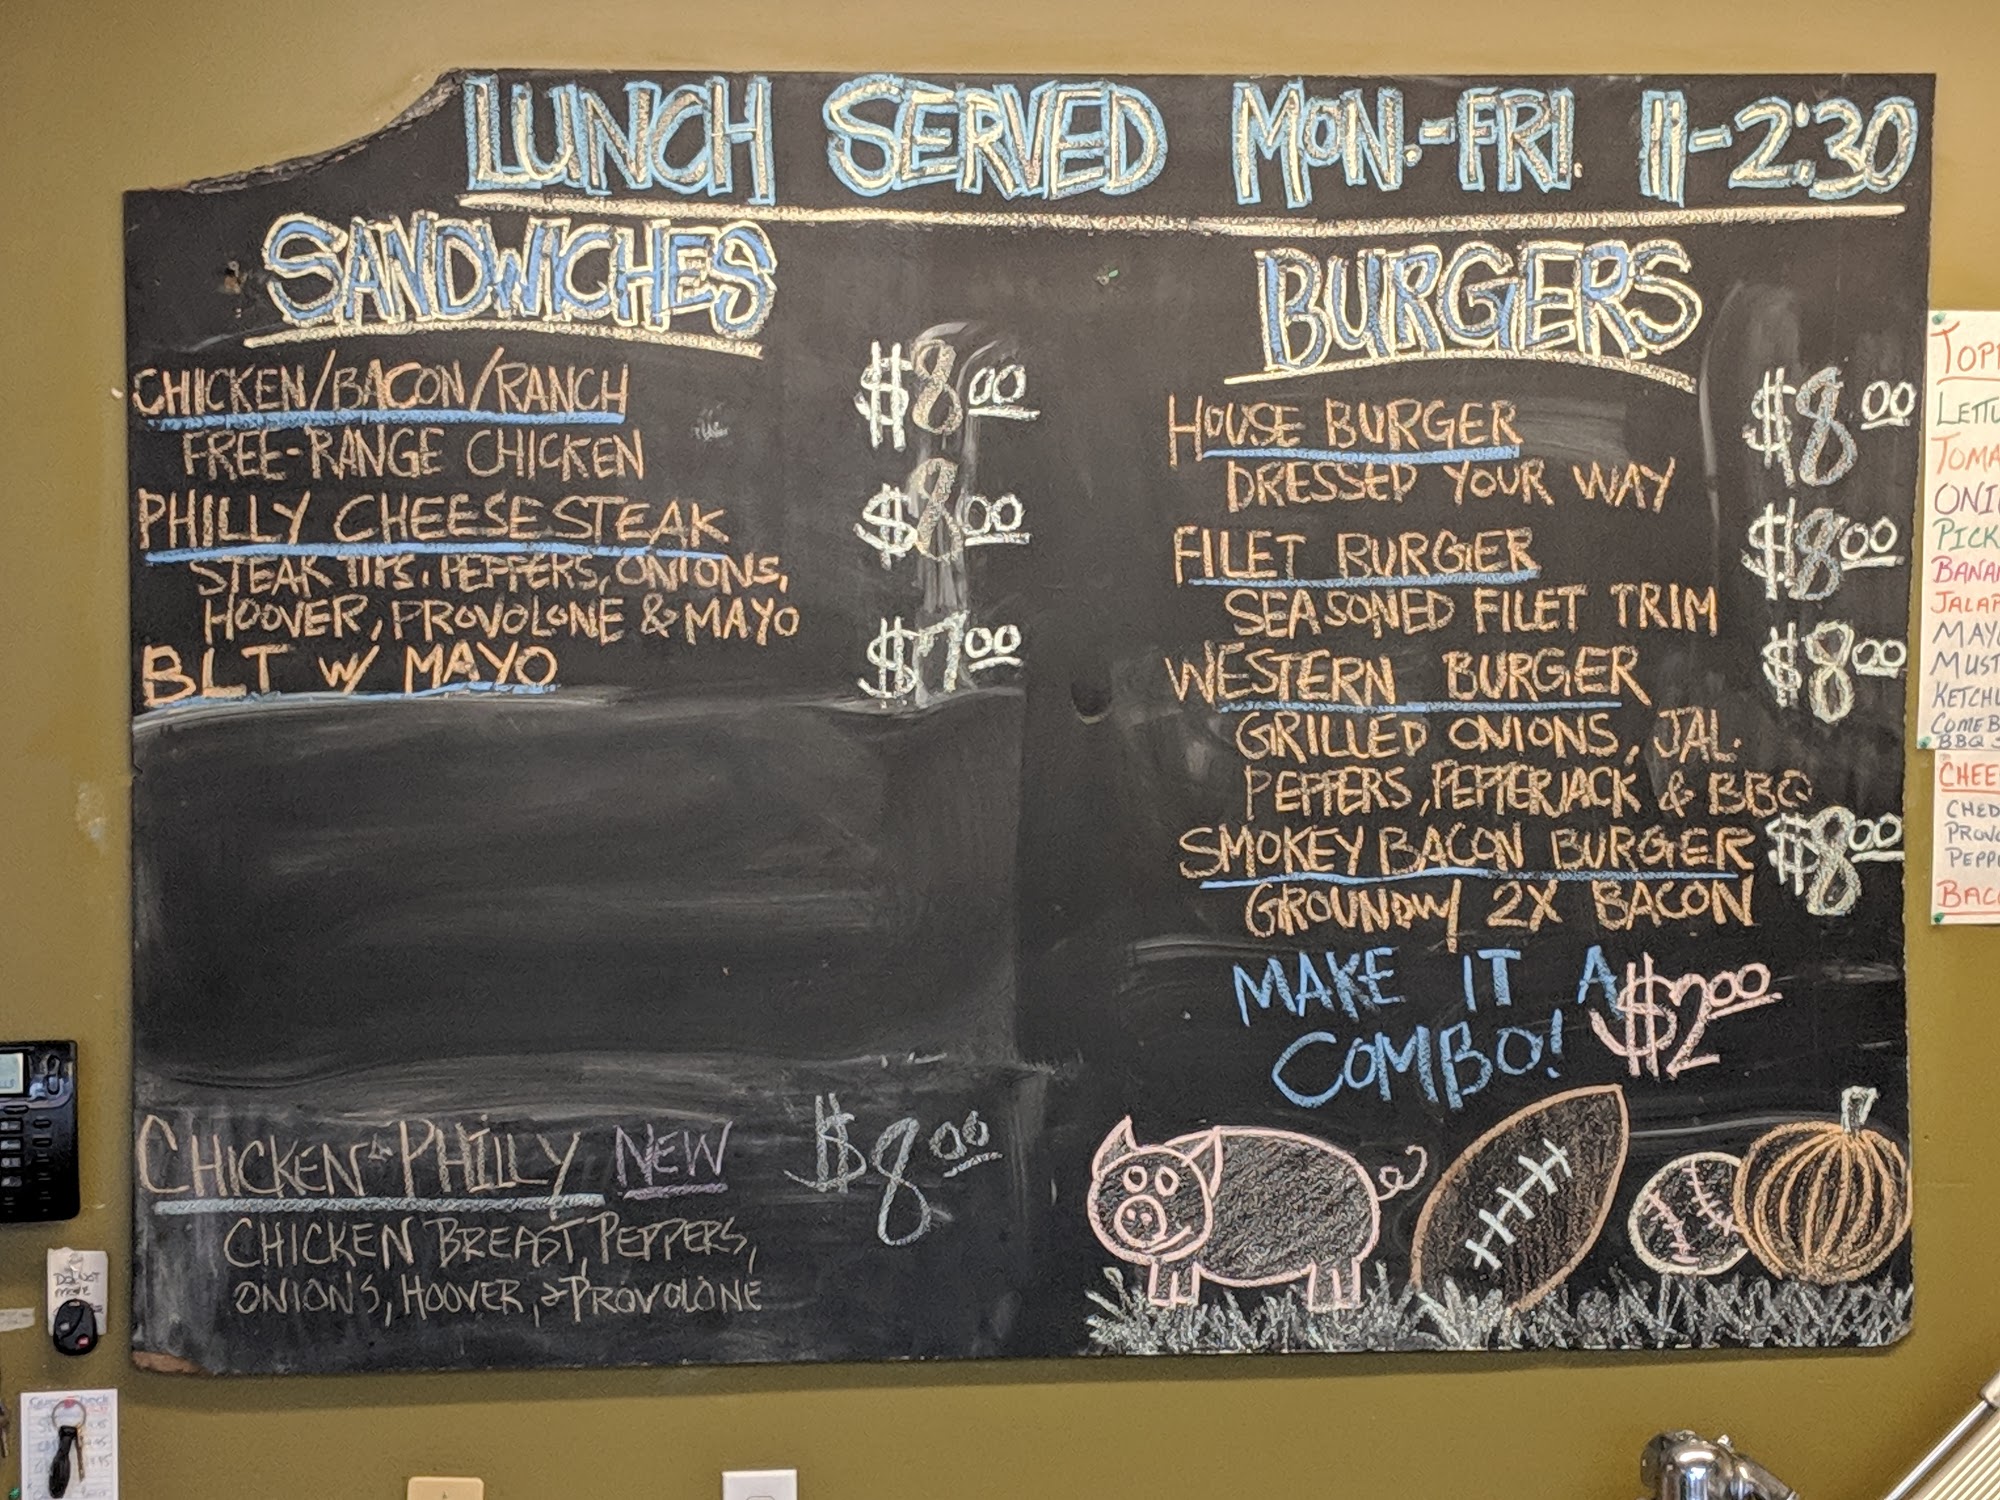 LUNCH SERVED MON.-FRI. 11-2:30
SANDWICHES
CHICKEN/BACON/RANCH $8.00
FREE-RANGE CHICKEN
PHILLY CHEESESTEAK $8.00
STEAK TIPS, PEPPERS, ONIONS,
HOOVER, PROVOLONE & MAYO
BLT W/ MAYO $7.00
CHICKEN PHILLY NEW $8.00
CHICKEN BREAST, PEPPERS,
ONION'S, HOOVER, & PROVOLONE
BURGERS
HOUSE BURGER $8.00
DRESSED YOUR WAY
FILET BURGER $8.00
SEASONED FILET TRIM
WESTERN BURGER $8.00
GRILLED ONIONS, JAL.
PEPPERS, PEPPERJACK & BBQ
SMOKEY BACON BURGER $8.00
GROUND W/ 2X BACON
MAKE IT A $2.00
COMBO!
TOPP
LETTU
TOMA
ONIO
PICK
BANAN
JALAP
MAYO
MUST
KETCHU
COME B
BBQ
CHEE
CHED
PROVO
PEPP
BACO
DO NOT
MOVE